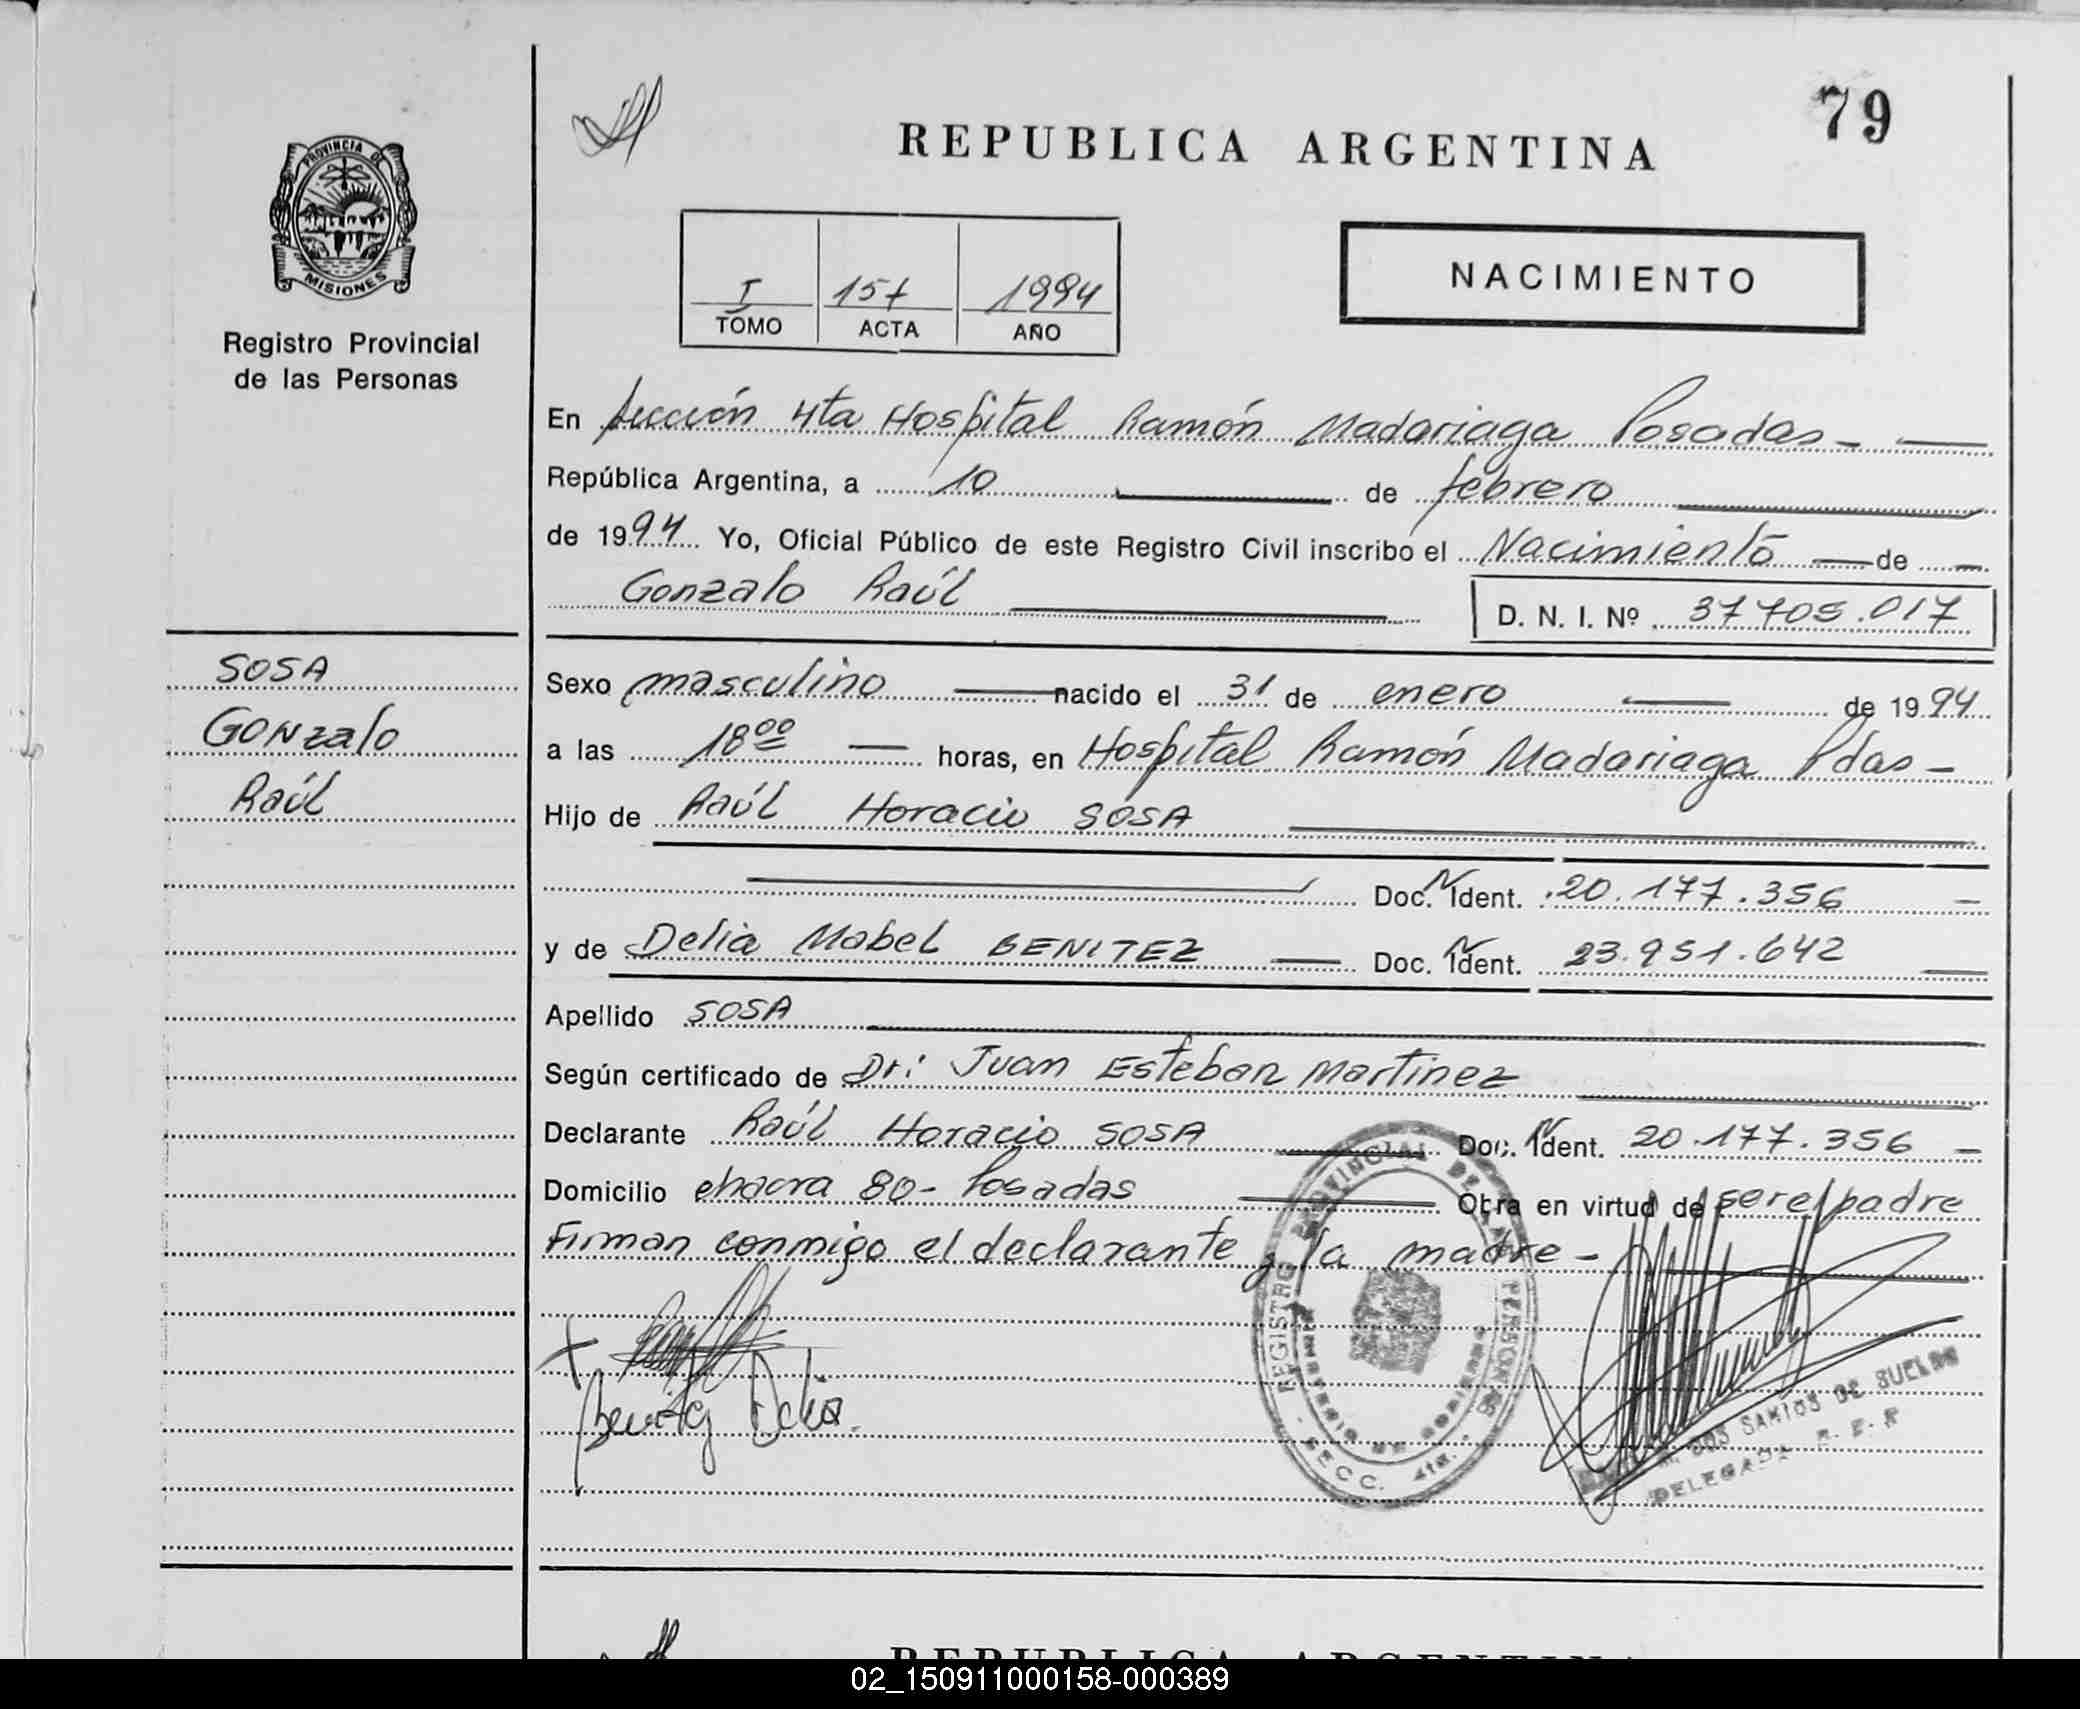 79
REPUBLICA ARGENTINA
PROVINCIA DE
MISIONES
Registro Provincial
de las Personas
I 157 1994
TOMO ACTA AÑO
NACIMIENTO
En Sección 4ta Hospital Ramón Madariaga Posadas-
República Argentina, a 10 de febrero
de 1994 Yo, Oficial Público de este Registro Civil inscribo el Nacimiento de
Gonzalo Raúl
D. N. I. Nº 37705.017
SOSA
Gonzalo
Raúl
Sexo masculino nacido el 31 de enero de 1994
a las 18 00 horas, en Hospital Ramón Madariaga Pdas-
Hijo de Raúl Horacio SOSA
Doc. Ident. 20.177.356
y de Delia Mabel BENITEZ Doc. Ident. 23.951.642
Apellido SOSA
Según certificado de Dr: Juan Esteban Martinez
Declarante Raúl Horacio SOSA Doc. Ident. 20.177.356
Domicilio chacra 80- Posadas Obra en virtud de ser el padre
Firman conmigo el declarante y la madre-
Benitez Delia.
REGISTRO PROVINCIAL DE LAS PERSONAS
MINISTERIO DE GOBIERNO
SECC. 4ta.
DOS SANTOS DE SUELDO
DELEGADA
REPUBLICA ARGENTINA
02_150911000158-000389